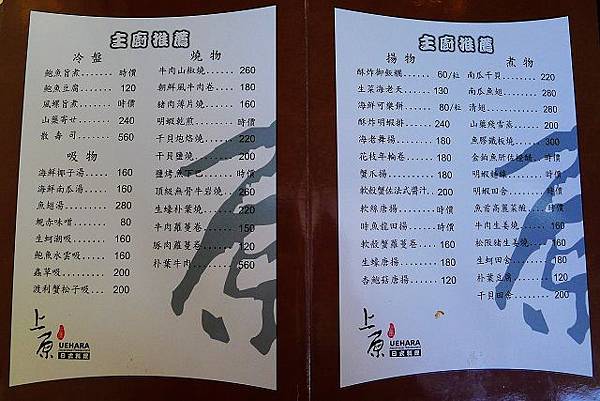 主廚推薦
冷盤
鮑魚旨煮........時價
鮑魚豆腐........120
風螺旨煮........時價
山藥寄せ........240
散壽司........560
吸物
海鮮椰子湯.....160
海鮮南瓜湯.....160
魚翅湯........280
蜆赤味噌........80
生蚵潮吸........160
鮑魚水雲吸....160
蟲草吸........200
波利蟹松子吸... 200
燒物
牛肉山椒燒.....260
朝鮮風牛肉卷....180
豬肉薄片燒.....160
明蝦乾煎........時價
干貝焰烙燒.....220
干貝鹽燒........200
鹽烤魚下巴.....時價
頂級無骨牛岩燒..260
生蠔朴葉燒.....220
牛肉蘿蔓卷.....150
豚肉蘿蔓卷.....120
朴葉牛肉........560
上原
UEHARA
日式料理
主廚推薦
揚物
酥炸御飯糰..... 60/粒
生菜海老天.....130
海鮮可樂餅..... 80/粒
酥炸明蝦排.....240
海老舞揚........180
花枝年輪卷.....180
蟹爪揚........180
軟殼蟹佐法式醬汁..200
軟絲唐揚........時價
時魚龍田揚.....時價
軟殼蟹蘿蔓卷....180
生蠔唐揚........180
杏鮑菇唐揚.....120
煮物
南瓜干貝........220
南瓜魚翅........280
清翅........280
山藥燴雪蒿.....200
魚膘鐵板燒.....300
明蝦田舍........時價
牛肉生姜燒.....160
松阪豬生姜燒....160
生蚵田舍........180
朴葉豆腐........120
干貝田舍........200
上原
UEHARA
日式料理